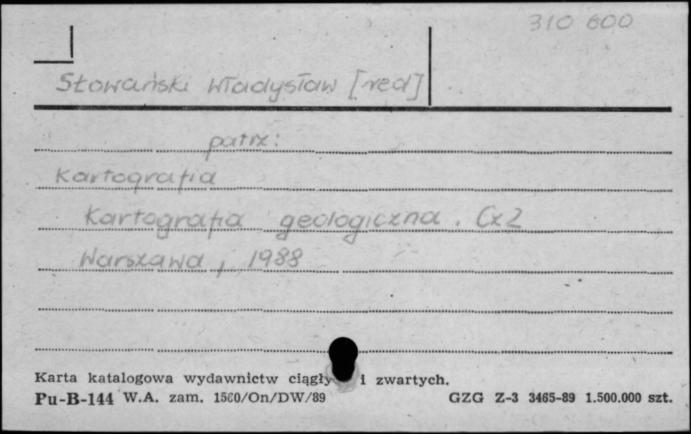 310 600
Słowański Władysław [red]
patrz:
Kartografia
Kartografia geologiczna. Cz 2
Warszawa, 1988
Karta katalogowa wydawnictw i zwartych.
Pu-B-144 W.A. zam. 1560/On/DW/89 GZG Z-3 3465-89 1.500.000 szt.